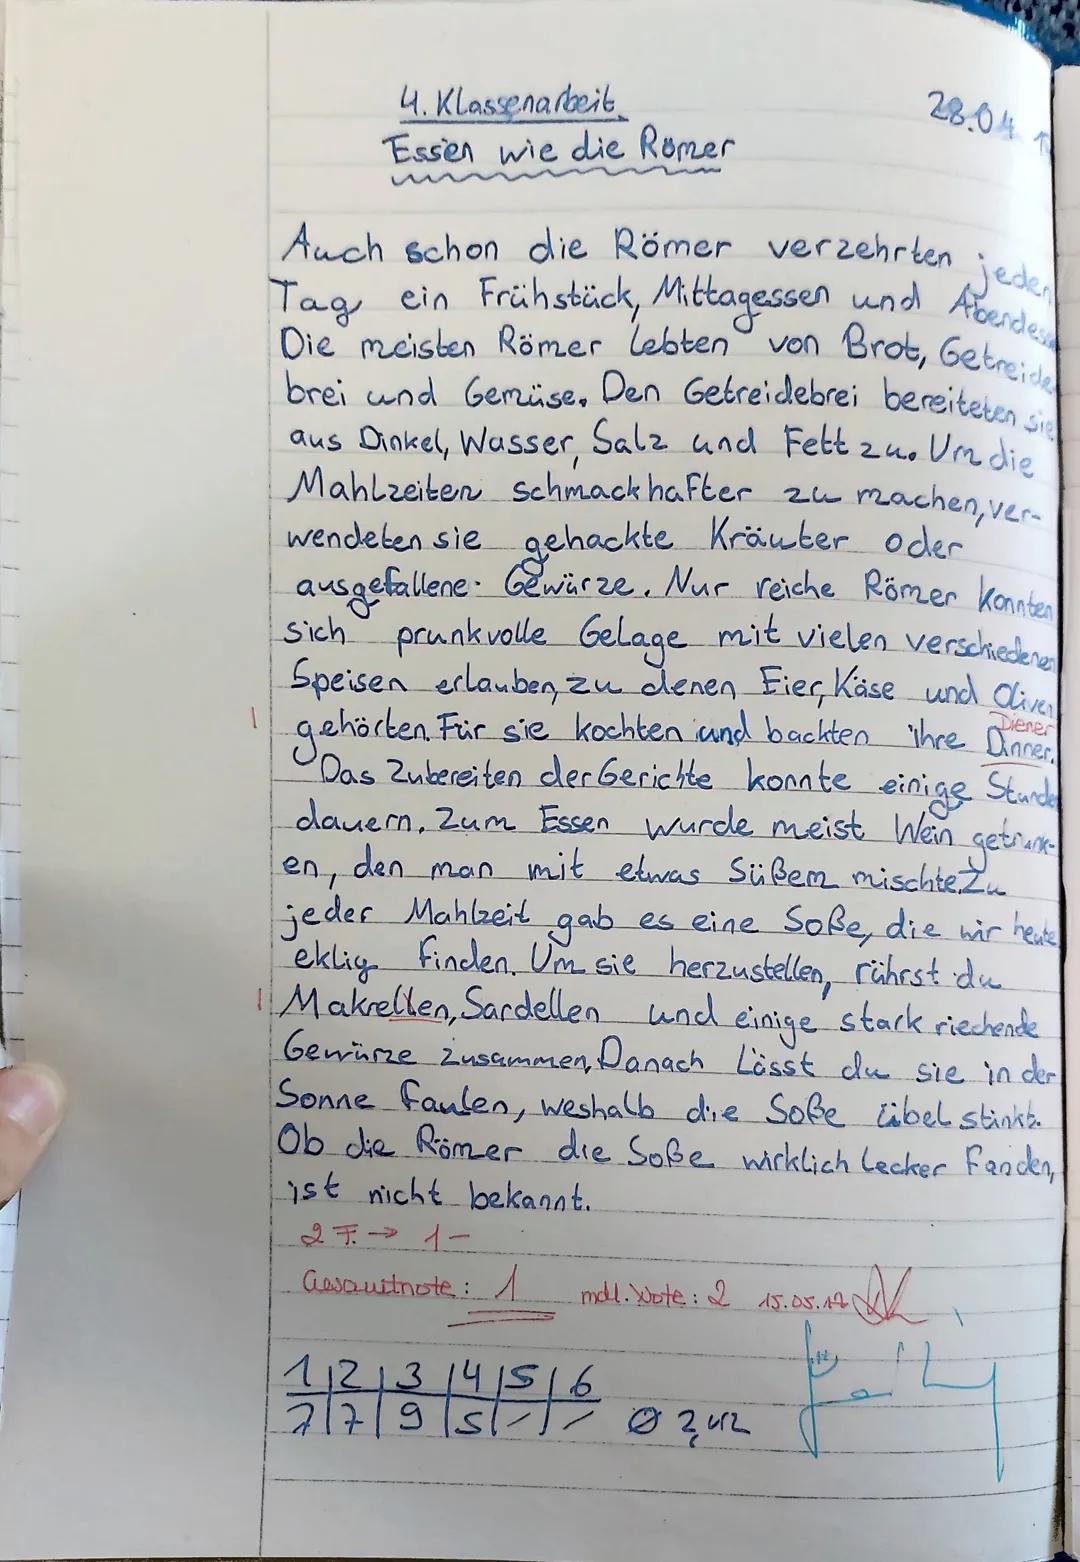 4. Klassenarbeit
28.04
Essen wie die Römer
Auch schon die Römer verzehrten jeden
Tag ein Frühstück, Mittagessen und Abendess
Die meisten Römer lebten von Brot, Getreide
brei und Gemüse. Den Getreidebrei bereiteten sie
aus Dinkel, Wasser, Salz und Fett zu. Um die
Mahlzeiten schmackhafter zu machen, ver-
wendeten sie gehackte Kräuter oder
ausgefallene Gewürze. Nur reiche Römer konnten
sich prunkvolle Gelage mit vielen verschiedenen
Speisen erlauben, zu denen Eier, Käse und Oliven
Diener
| gehörten. Für sie kochten und backten ihre Dinner.
Das Zubereiten der Gerichte konnte einige Stunde
dauern. Zum Essen wurde meist Wein getrunk-
en, den man mit etwas Süßem mischte. Zu
jeder Mahlzeit gab es eine Soße, die wir heute
eklig finden. Um sie herzustellen, rührst du
| Makrellen, Sardellen und einige stark riechende
Gewürze zusammen. Danach lässt du sie in der
Sonne faulen, weshalb die Soße übel stinkt.
Ob die Römer die Soße wirklich lecker fanden,
ist nicht bekannt.
2 F. → 1-
Gesamtnote: 1 mdl. Note: 2 15.05.17
1 2 3 4 5 6
7 7 9 5 / / Ø 2,42